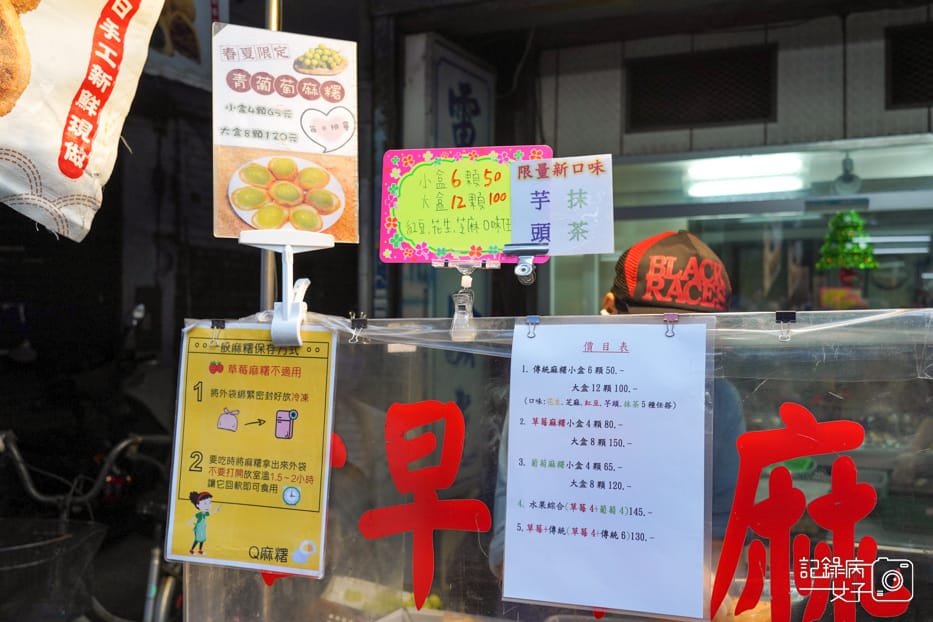 日手工新鮮現做
春夏限定
青葡萄麻糬
小盒4顆65元
大盒8顆120元
小盒6顆50
大盒12顆100
紅豆、花生、芝麻口味任
限量新口味
芋頭
抹茶
雷
BLACK
RACES
一般麻糬保存方式
草莓麻糬不適用
1 將外袋綁緊密封好放冷凍
2 要吃時將麻糬拿出來外袋
不要打開放室溫1.5~2小時
讓它回軟即可食用
Q麻糬
價目表
1. 傳統麻糬小盒 6 顆 50.-
大盒 12 顆 100.-
(口味:花生、芝麻、紅豆、芋頭、抹茶 5 種任搭)
2. 草莓麻糬小盒 4 顆 80.-
大盒 8 顆 150.-
3. 葡萄麻糬小盒 4 顆 65.-
大盒 8 顆 120.-
4. 水果綜合(草莓 4+葡萄 4)145.-
5. 草莓+傳統(草莓 4+傳統 6)130.-
早
麻
記錄病
女子